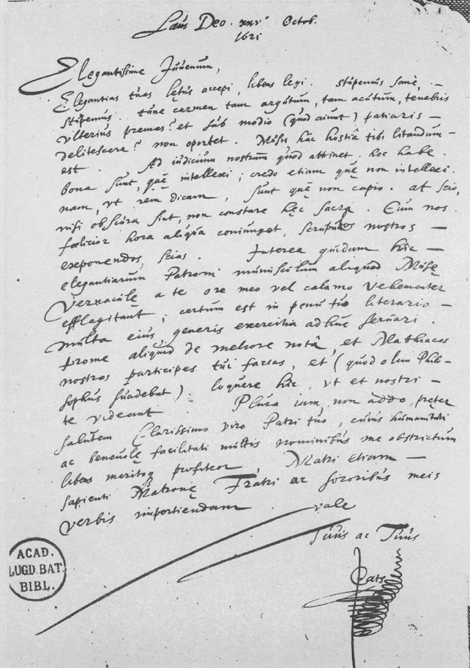 Laus Deo. xxv Octob.
1621
Elegantissime Juvenum,
Elegantias tuas lętus accepi, libens legi. stupemus sanè, —
stupemus. tune carmen tam argutum, tam acutum, tenebris
ulterius premas? et sub modio (quod aiunt) patiaris —
delitescere? non oportet. Musis hâc hostiâ tibi litandum —
est. Ad iudicium nostrum quod attinet. hoc habe.
bona sunt, quę intellexi; credo etiam quę non intellexi.
nam, ut rem dicam, sunt quę non capio. at scio,
nisi obscura sint, non constare hęc sacra. Cum nos
foelicior hora aliqua coniunget, scrupulos nostros —
exponendos, scias. Interea quidam hic —
elegantiarum Patroni munusculum aliquod Musę
Vernaculę a te ore meo vel calamo vehementer
efflagitant; certum est in penu tuo literario —
multa eius generis exercitia adhuc servari
prome aliquid de meliore notâ, et Matthiacos
nostros participes tui facias, et (quod olim Philo-
sophus suadebat) loquere hîc, ut et nostri —
te videant Plura iam, non addo, pręter
salutem Clarissimo viro Patri tuo, cuius humanitati
ac benevolę facilitati multis nominibus me obstrictum
libens meritoq profiteor Matri etiam —
sapienti Matronę Fratri ac sororibus meis
verbis impertiendam. vale
Suus ac Tuus
Cats
ACAD.
LUGD.BAT.
BIBL.